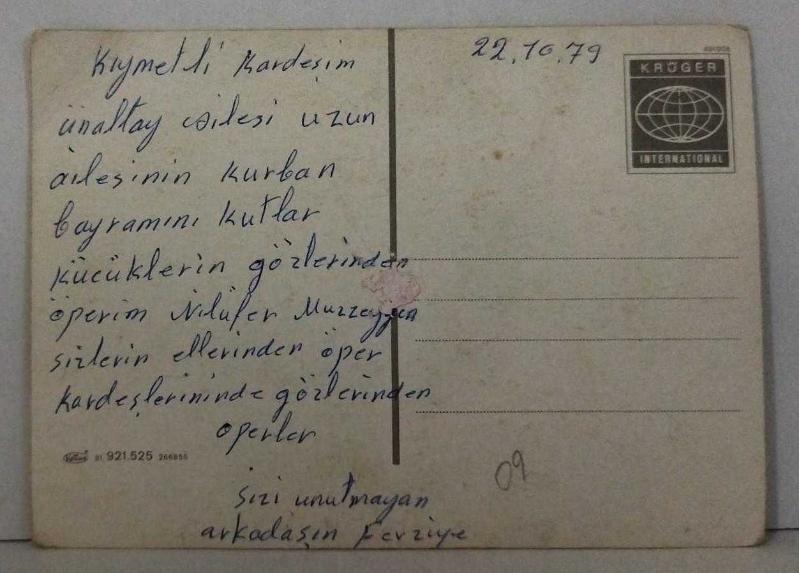 22.10.79
Kıymetli Kardeşim
ünaltay ailesi uzun
ailesinin Kurban
bayramını Kutlar
Küçüklerin gözlerinden
öperim Nilüfer Muzzeyyen
sizlerin ellerinden öper
Kardeşlerininde gözlerinden
öperler
sizi unutmayan
arkadaşın Fevziye
KRÜGER
INTERNATIONAL
921.525
09